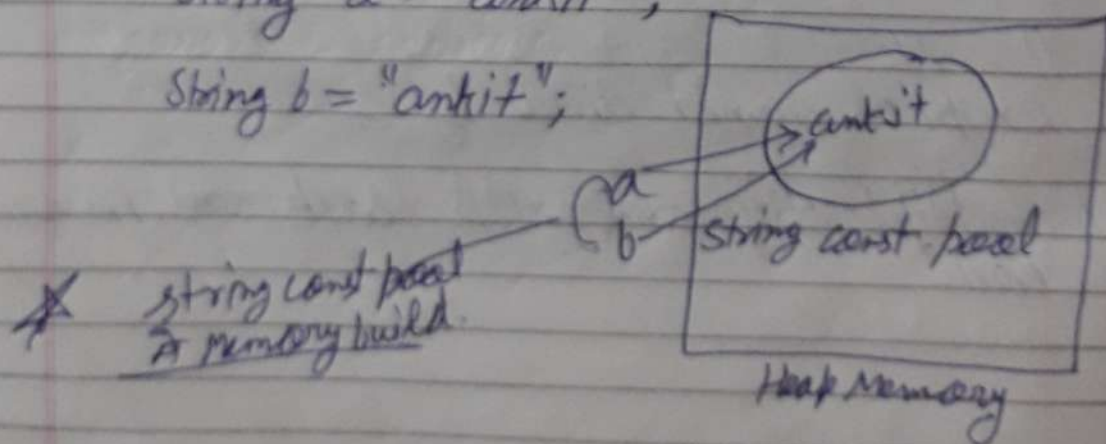 String b = "ankit";
ankit
a
b
String const pool
string const pool
A memory build.
Heap Memory